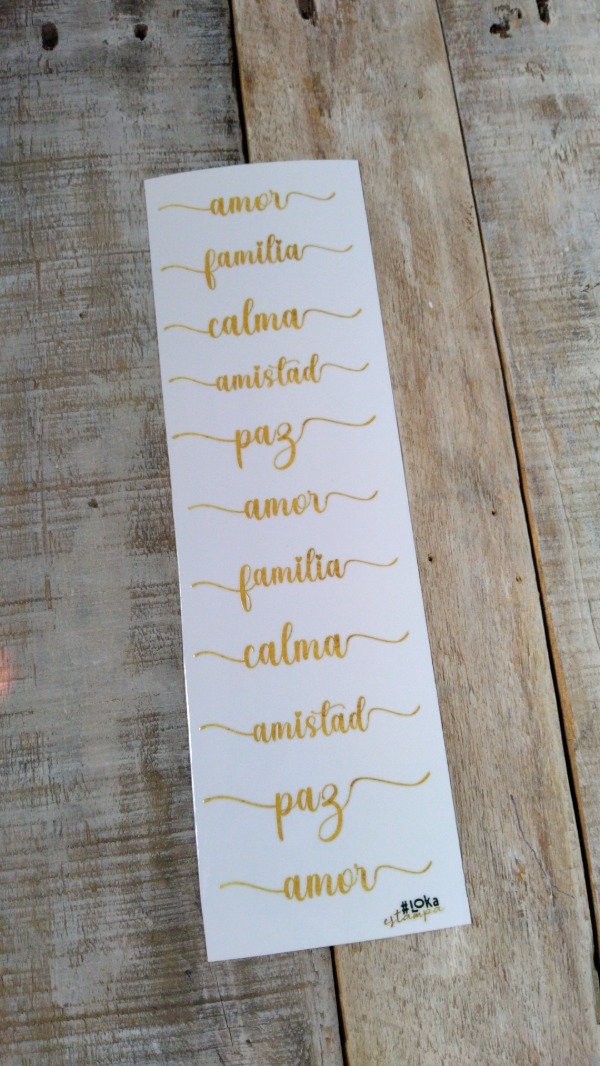 amor
familia
calma
amistad
paz
amor
familia
calma
amistad
paz
amor
#LOKa
estampa